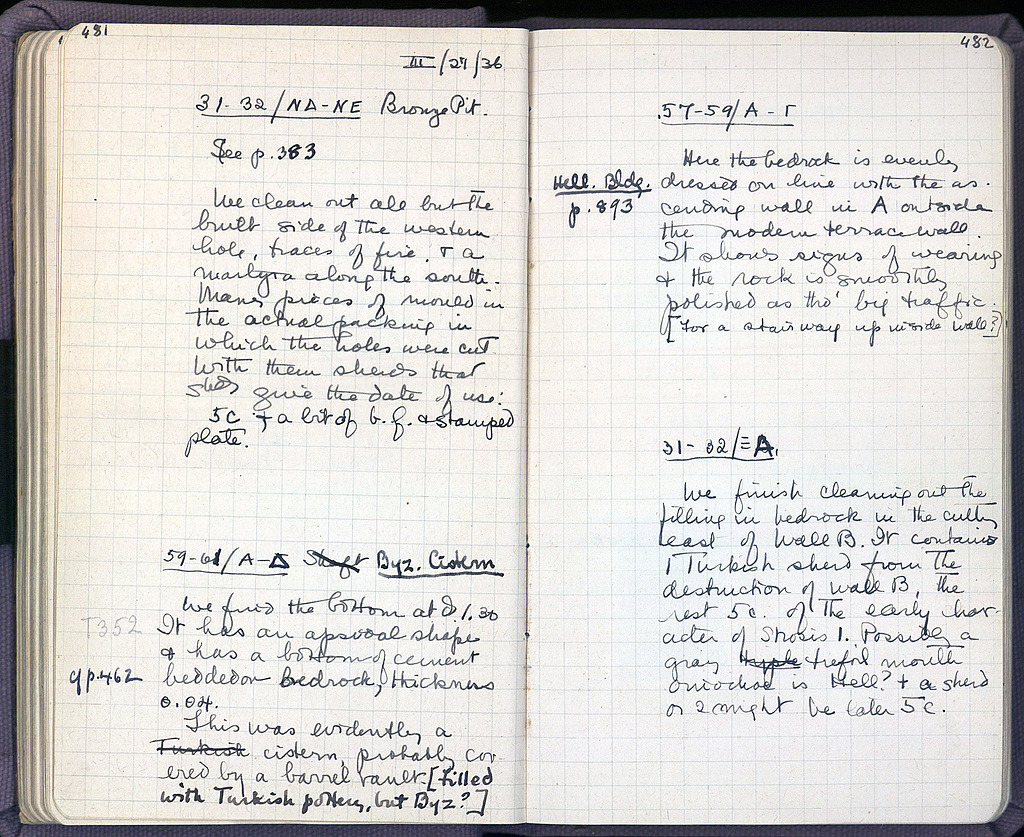 481
III/27/36
31-32/ΝΔ-ΝΕ Bronze Pit.
See p. 383
We clean out all but the
built side of the western
hole, traces of fire, & a
along the south.
Many pieces of mould in
the actual packing in
which the holes were cut
with them sherds that
shd give the date of use:
5c & a bit of b.g. & stamped
plate.
59-61/Α-Δ Shaft Byz. Cistern
We find the bottom at 1.30
T352
It has an apsoidal shape
& has a bottom of cement
cf p. 462
bedded on bedrock, thickness
0.04.
This was evidently a
Turkish cistern, probably cov-
ered by a barrel vault. [Filled
with Turkish pottery, but Byz?]
482
57-59/Α-Γ
Here the bedrock is evenly
Hell. Bldg.
p. 893
dressed on line with the as-
cending wall in A outside
the modern terrace wall.
It shows signs of wearing
& the rock is smoothly
polished as tho' by traffic.
[For a stairway up inside wall?]
31-32/ΞΑ.
We finish cleaning out the
filling in bedrock in the cutting
east of Wall B. It contains
1 Turkish sherd from the
destruction of wall B, the
rest 5c. of the early char-
acter of Strosis 1. Possibly a
gray trefoil mouth
oinochoe is Hell? & a sherd
or 2 might be later 5c.